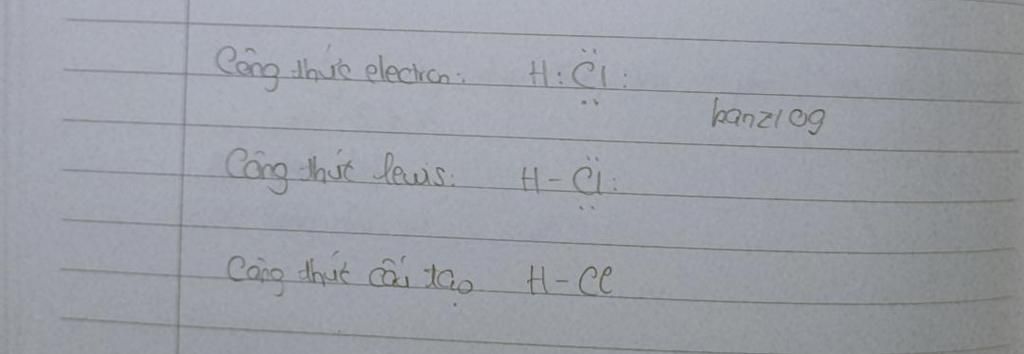 Công thức electron: H:C̈l:
kanz109
Công thức lewis: H-C̈l:
Công thức cấu tạo H-Cl